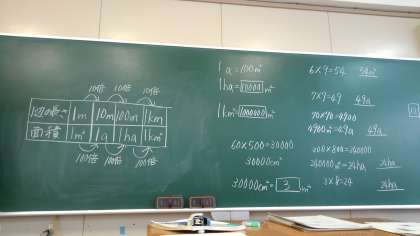 10倍 10倍 10倍
1辺の長さ 1m 10m 100m 1km
面積 1m² 1a 1ha 1km²
100倍 100倍 100倍
1a=100m²
1ha=10000m²
1km²=1000000m²
60×500=30000
30000cm²
30000cm²=3m²
6×9=54 54m²
7×7=49 49a
70×70=4900
4900m²=49a 49a
300×800=240000
240000m²=24ha 24ha
3×8=24 24ha